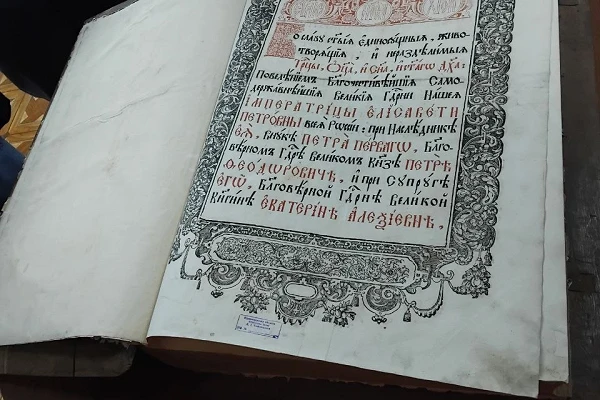 Во славу ст҃ыѧ єдиносꙋщныѧ, живо-
творѧщїѧ, и нераздѣлимыѧ
Трⷪ҇цы, Ѻц҃а, и Сн҃а, и ст҃агѡ дх҃а:
Повелѣнїемъ Благочестивѣйшїѧ Само-
державнѣйшїѧ Великїѧ Гдⷭ҇рни Нашеѧ
ІМПЕРАТРІЦЫ ЕЛІСАВЕТИ
ПЕТРОВНЫ всеѧ Рѡссїи: при Наслѣдникѣ
ЕѦ, Внꙋкѣ ПЕТРА ПЕРВАГѠ, Благо-
вѣрномъ Гдⷭ҇рѣ Великомъ Кнѕѣ ПЕТРѢ
ѲЕОДѠРОВИЧѢ, и при Сꙋпрꙋгѣ
ЕГѠ, Благовѣрной Гдⷭ҇рнѣ Великой
Кнѧгинѣ ЕКАТЕРІНѢ АЛЕѮІЕВНѢ,